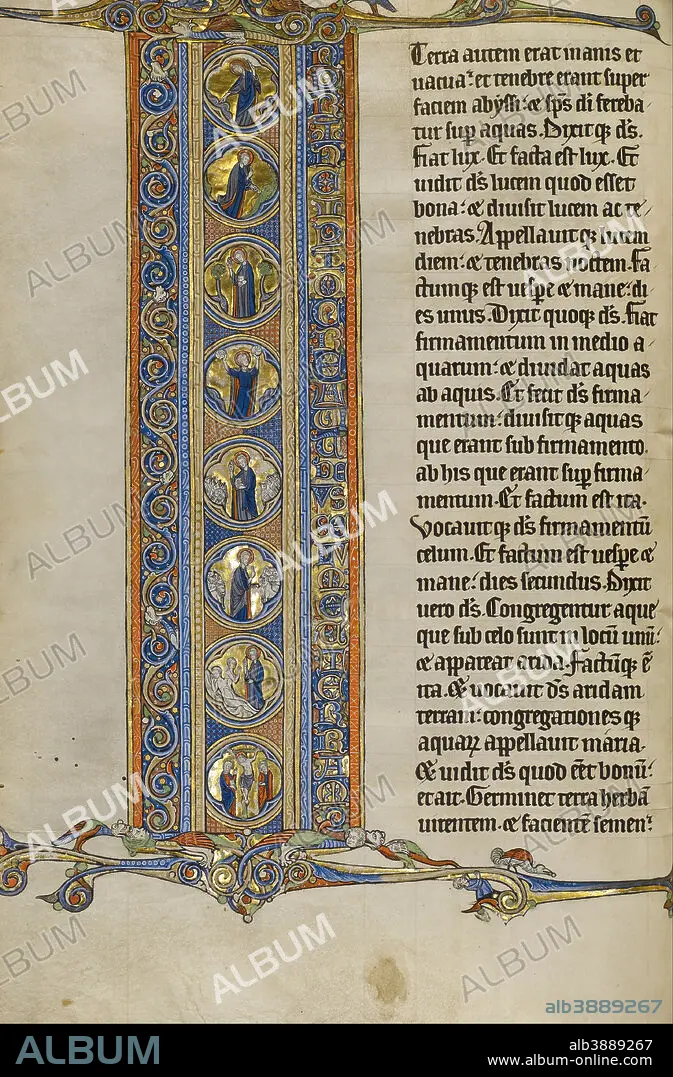 Terra autem erat inanis et
uacua: et tenebre erant super
faciem abyssi: et sps di fereba-
tur sup aquas. Dixitq ds.
fiat lux. Et facta est lux. Et
uidit ds lucem quod esset
bona: et diuisit lucem ac te-
nebras. Appellauitq lucem
diem: et tenebras noctem. Fa
ctumq est uespe et mane: di
es unus. Dixit quoq ds. Fiat
firmamentum in medio a
quarum: et diuidat aquas
ab aquis. Et fecit ds firma
mentum: diuisitq aquas
que erant sub firmamento.
ab his que erant sup firma-
mentum. Et factum est ita.
Vocauitq ds firmamentū
celum. Et factum est uespe et
mane: dies secundus. Dixit
uero ds. Congregentur aque
que sub celo sunt in locū unū:
et appareat arida. Factūq ē
ita. Et uocauit ds aridam
terram: congregationesq
aquarꝝ appellauit maria.
Et uidit ds quod eēt bonū:
et ait. Germinet terra herbā
uirentem. et facientē semen:
ALBUM
alb3889267
ALBUM
alb3889267
www.album-online.com